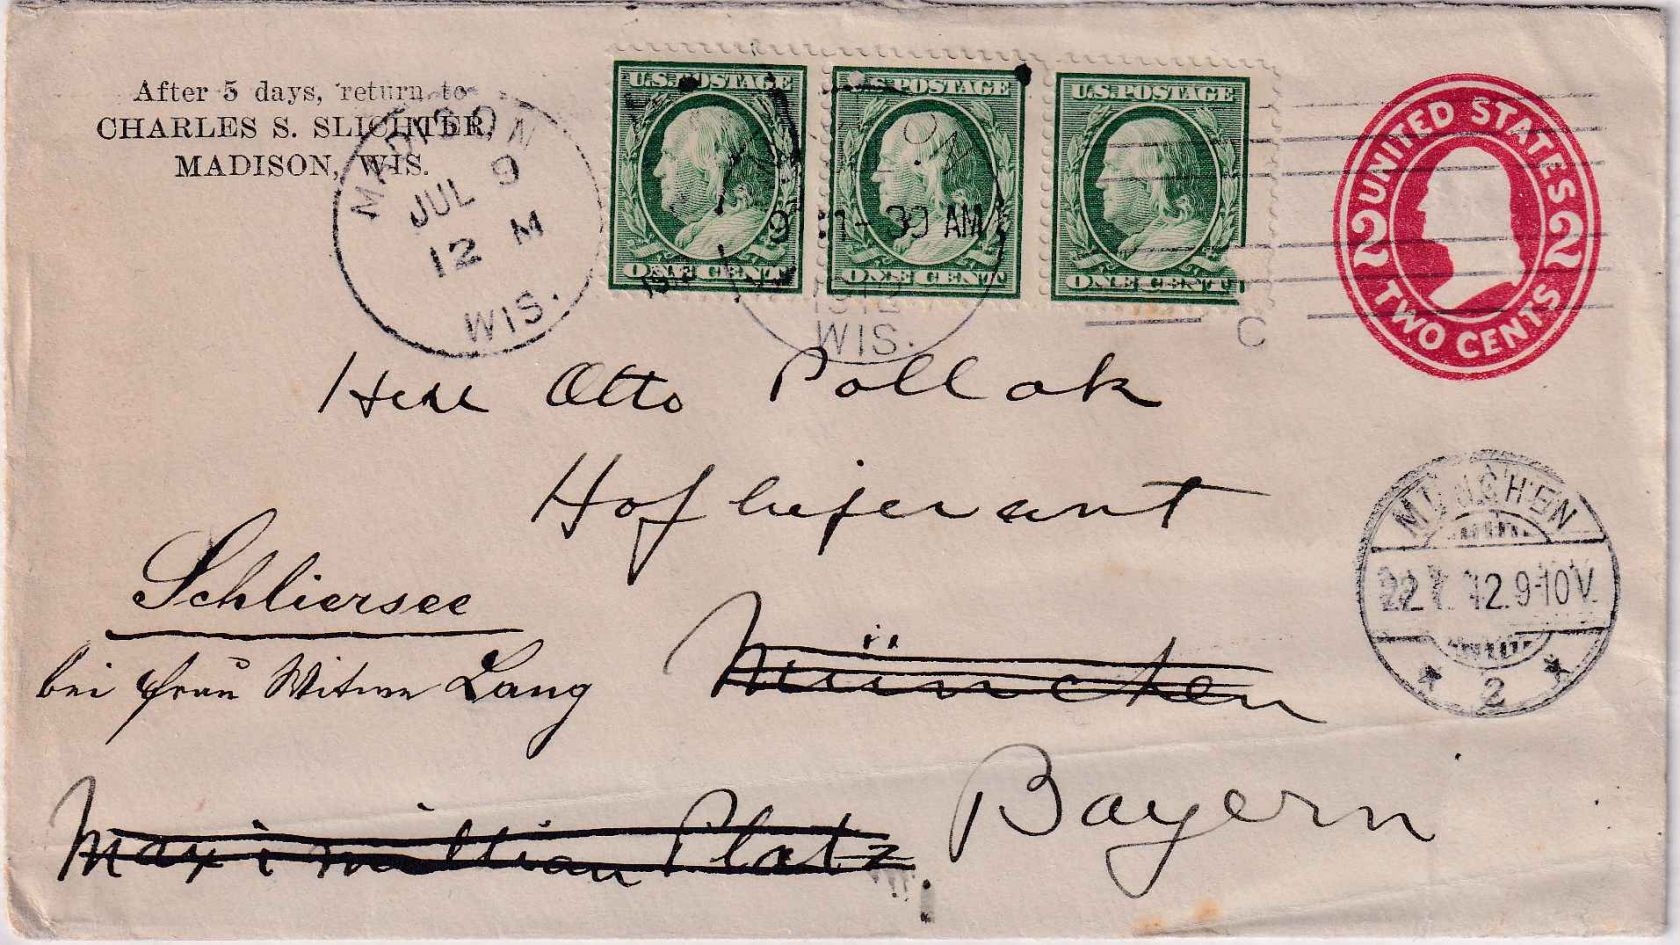 After 5 days, return to
CHARLES S. SLICHTER,
MADISON, WIS.
MADISON
JUL 9
12 M
WIS.
U.S. POSTAGE
ONE CENT
U.S. POSTAGE
ONE CENT
U.S. POSTAGE
ONE CENT
9 1-30 AM
1912
WIS.
C
UNITED STATES
2 2
TWO CENTS
Herr Otto Pollak
Hoflieferant
München
Maximillian Platz
Bayern
Schliersee
bei Frau Witwe Lang
MÜNCHEN
22 12. 9-10 V.
* 2 *